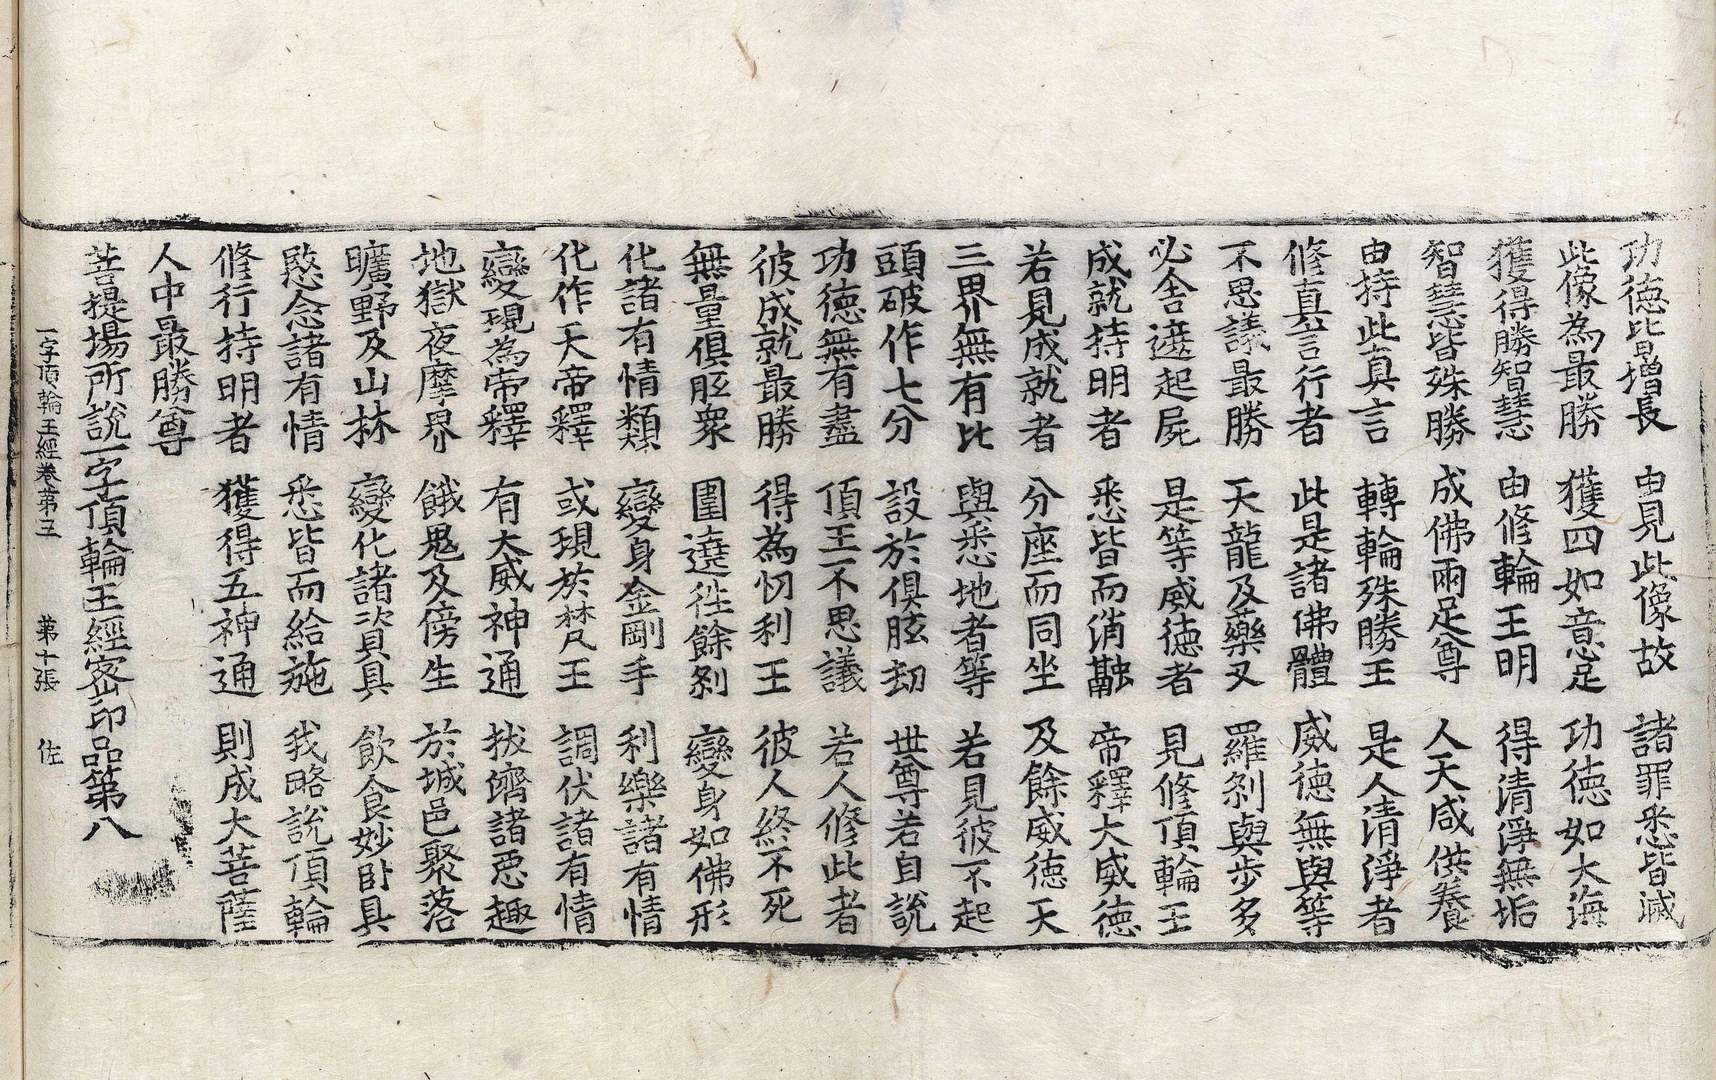 功德皆增長 由見此像故 諸罪悉皆滅
此像為最勝 獲四如意足 功德如大海
獲得勝智慧 由修輪王明 得清淨無垢
智慧皆殊勝 成佛兩足尊 人天咸供養
由持此真言 轉輪殊勝王 是人清淨者
修真言行者 此是諸佛體 威德無與等
不思議最勝 天龍及藥叉 羅剎與步多
必舍遮起屍 是等威德者 見修頂輪王
成就持明者 悉皆而消融 帝釋大威德
若見成就者 分座而同坐 及餘威德天
三界無有比 與悉地者等 若見彼不起
頭破作七分 設於俱胝劫 世尊若自說
功德無有盡 頂王不思議 若人修此者
彼成就最勝 得為忉利王 彼人終不死
無量俱胝眾 圍遶往餘剎 變身如佛形
化諸有情類 變身金剛手 利樂諸有情
化作天帝釋 或現於梵王 調伏諸有情
變現為帝釋 有大威神通 拔濟諸惡趣
地獄夜摩界 餓鬼及傍生 於城邑聚落
曠野及山林 變化諸資具 飲食妙卧具
愍念諸有情 悉皆而給施 我略說頂輪
修行持明者 獲得五神通 則成大菩薩
人中最勝尊
菩提場所說一字頂輪王經密印品第八
一字頂輪王經卷第三 第十張 佐